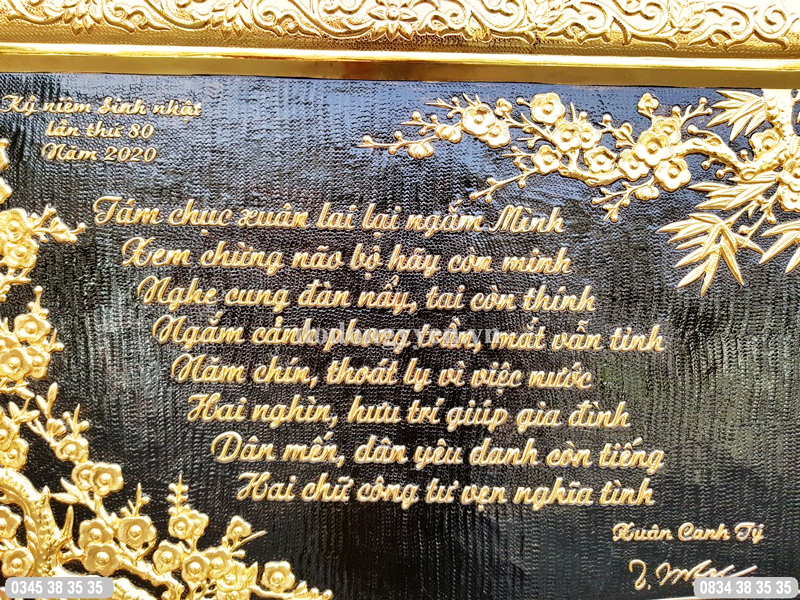 Kỷ niệm Sinh nhật
lần thứ 80
Năm 2020
Tám chục xuân lai lai ngắm Mình
Xem chừng não bộ hãy còn minh
Nghe cung đàn nẩy, tai còn thính
Ngắm cảnh phong trần, mắt vẫn tinh
Năm chín, thoát ly vì việc nước
Hai nghìn, hưu trí giúp gia đình
Dân mến, dân yêu danh còn tiếng
Hai chữ công tư vẹn nghĩa tình
Xuân Canh Tý
0345 38 35 35
0834 38 35 35